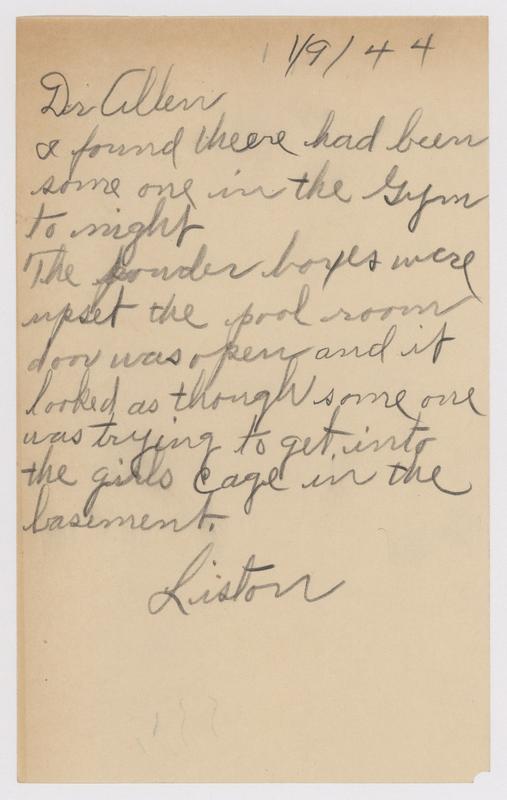 1/9/44
Dr Allen
I found theere had been
some one in the Gym
to night
The powder boxes were
upset the pool room
door was open and it
looked as though some one
was trying to get into
the girls cage in the
basement.
Liston